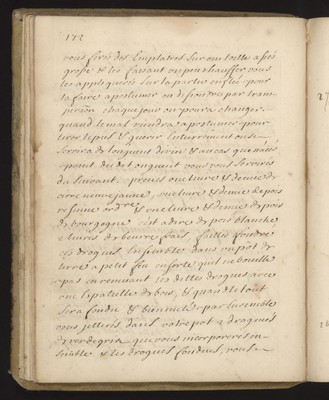 172
vous ferés des Emplatres sur une toille assés
grosse & les faisant un peu chauffer vous
les appliquerés sur la partie enflée pour
la faire apostumer ou disoudre par tran-
piration chaque jour on poura changer.
quand le mal viendra a postumer pour
tirer le pus & guerir entierement on se
servira de longuent divin & au cas que n'aiés
point du dit onguent vous vous servirés
du suivant. prenés une livre & demie de
cire neuve jaune, une livre & demie de poix
resinne ordre & une livre & demie de poix
de bourgogne cest a dire de poix blanche
& livres de beurre frais faittes fondre
ces drogues Ensemble dans un pot de
terre a petit feu en sorte quil ne bouille
pas en remuant les dittes drogues avec
une Espatulle de bois, & quand le tout
sera fondu & bien melé par Ensemble
vous jetterés dans votre pot 2 dragmes
de verdegris que vous incorporerés en-
semble & les drogues fondues, vous